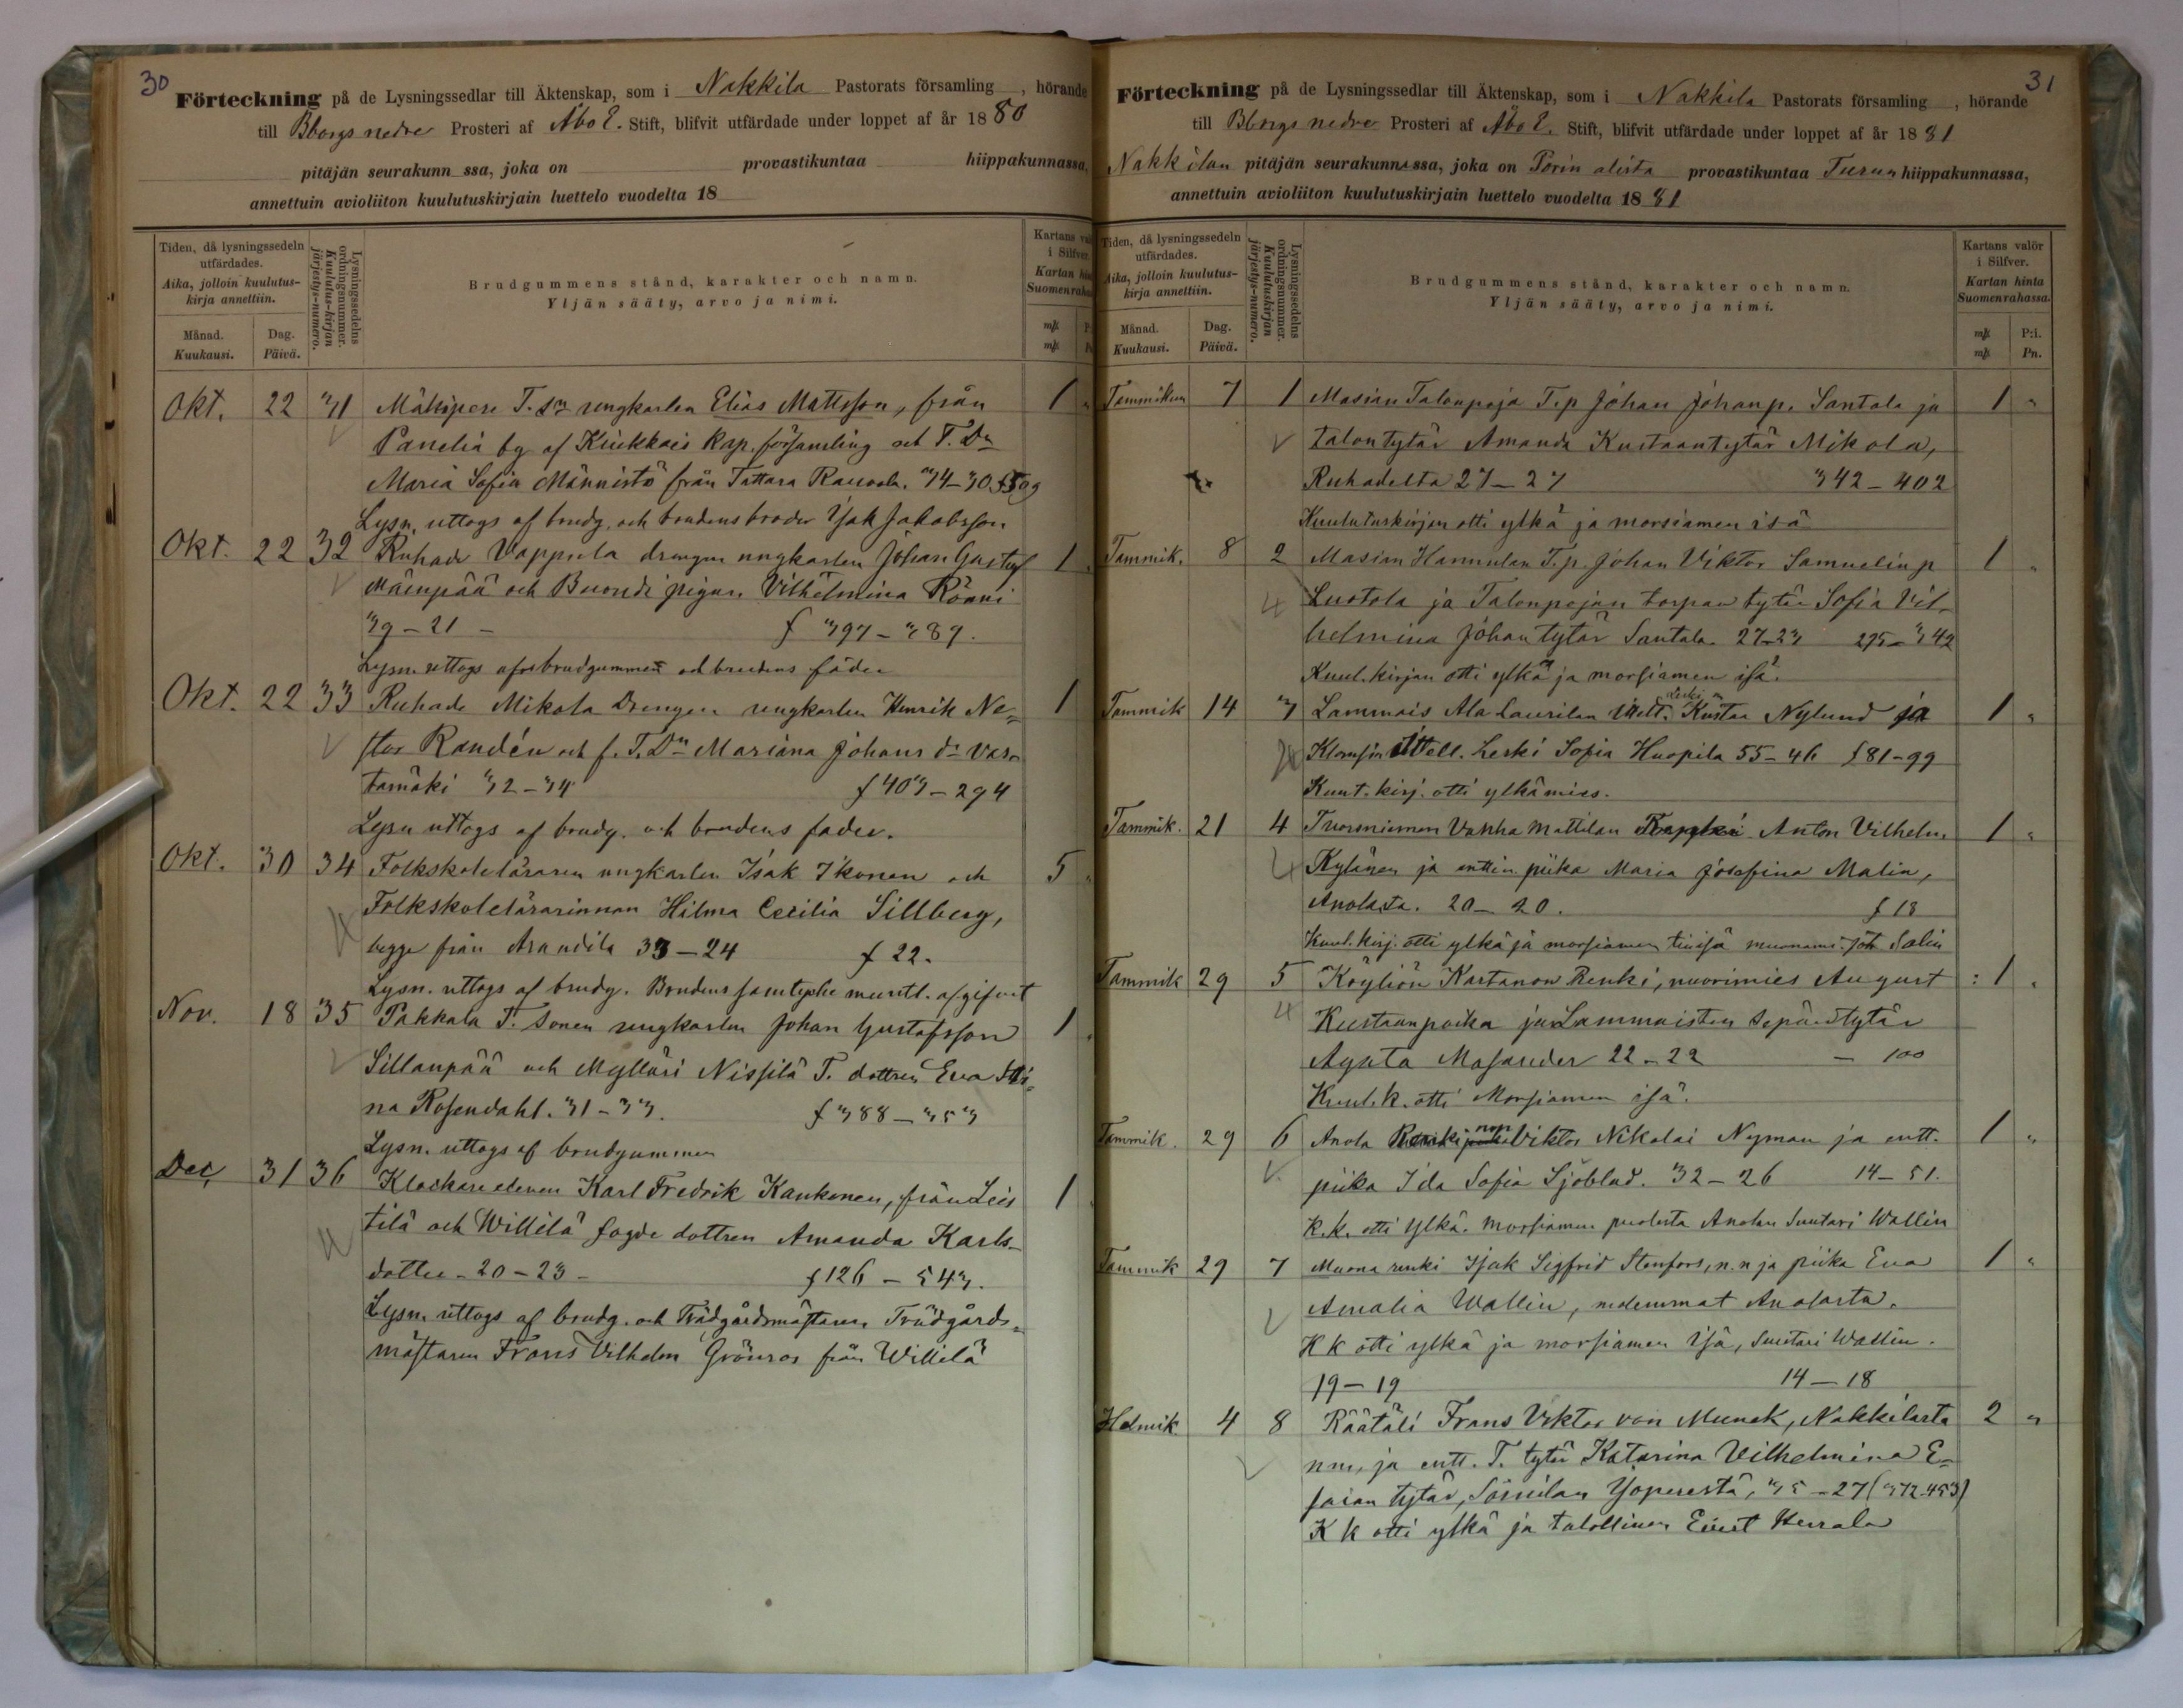 30
Förteckning på de Lysningssedlar till Äktenskap, som i Nakkila Pastorats församling, hörande
till Bborgs nedre Prosteri af Åbo E. Stift, blifvit utfärdade under loppet af år 1880
pitäjän seurakunn ssa, joka on provastikuntaa hiippakunnassa,
annettuin avioliiton kuulutuskirjain luettelo vuodelta 18
Tiden, då lysningssedeln utfärdades.
Aika, jolloin kuulutuskirja annettiin.
Månad. Kuukausi.
Dag. Päivä.
Lysningssedelns ordningsnummer.
Kuulutus-kirjan järjestys-numero.
Brudgummens stånd, karakter och namn.
Yljän sääty, arvo ja nimi.
Kartans
i Silfver.
Kartan
Okt. 22 31 Mäkipere T. sn ungkarlen Elias Mattsson, från 1
Panelia by af Kiukkais Kap. församling och T. Dn
Maria Sofia Männistö från Tattara 34-30
Lysn. uttogs af brudg. och brudens broder Isak Jakobsson
Okt. 22 32 Ruhade Vappula drengen ungkarlen Johan Gustaf 1
Mäenpää och Buondi pigan Vilhelmina Rönni
39-21 - f 397-389.
Lysn. uttogs af brudgummen och brudens fader
Okt. 22 33 Ruhade Mikola Drengen ungkarlen Henrik Ne= 1
stor Randén och f. T. Dn Mariana Johans dr Vas=
tamäki 32-34 f 403-294
Lysn uttogs af brudg. och brudens fader.
Okt. 30 34 Folkskoleläraren ungkarlen Isak Ikonen och 5
Folkskolelärarinnan Hilma Cecilia Sillberg,
begge från Arandila 33-24 f 22.
Lysn. uttogs af brudg. Brudens samtycke muntl. afgifvet
Nov. 18 35 Pakkala T. Sonen ungkarlen Johan Gustafsson 1
Sillanpää och Mylläri Nissilä T. dottren Eva Sti=
na Rosendahl. 31-33. f 388-353
Lysn. uttogs af brudgummen
Dec, 31 36 Klockare eleven Karl Fredrik Kankonen, från Leis 1
tilä och Willilä fogde dottren Amanda Karls-
dotter - 20-23 - f 126-543.
Lysn. uttogs af brudg. och Trädgårdsmästaren Trädgårds=
mästaren Frans Vilhelm Grönros från Willilä
31
Förteckning på de Lysningssedlar till Äktenskap, som i Nakkila Pastorats församling, hörande
till Bborgs nedre Prosteri af Åbo E. Stift, blifvit utfärdade under loppet af år 1881
Nakkilan pitäjän seurakunnassa, joka on Porin alista provastikuntaa Turun hiippakunnassa,
annettuin avioliiton kuulutuskirjain luettelo vuodelta 1881
Tiden, då lysningssedeln utfärdades.
Aika, jolloin kuulutuskirja annettiin.
Månad. Kuukausi.
Dag. Päivä.
Lysningssedelns ordningsnummer.
Kuulutuskirjan järjestys-numero.
Brudgummens stånd, karakter och namn.
Yljän sääty, arvo ja nimi.
Kartans valör i Silfver.
Kartan hinta Suomenrahassa.
P:i. Pn.
Tammikun 7 1 Masian Talonpoja T.p Johan Johan p. Santala ja 1 "
talontytär Amanda Kustaantytär Mikola,
Ruhadelta 27-27 342-402
Kuulutuskirjan otti ylkä ja morsiamen isä
Tammik. 8 2 Masian Hannulan T.p. Johan Viktor Samuelin p 1 "
Luotola ja Talonpojan torpan tytär Sofia Vil-
helmina Johantytär Santala 27-23 295-342
Kuul.kirjan otti ylkä ja morsiamen isä.
Tammik 14 3 Lammais Ala Laurilan Leski Kustaa Nylund ja 1 "
Itsell. Leski Sofia Huopila 55-46 f 81-99
Kuut.kirj. otti ylkämies.
Tammik. 21 4 Vanha Mattilan Anton Vilhelm 1 "
Kylänen ja piika Maria Josefina Malin,
Anolasta. 20-20. f 18
Kuul.kirj. otti ylkä ja morsiamen Joh Salin
Tammik 29 5 Köyliön Kartanon Renki, nuorimies August : 1 "
Kustaanpoika ja Lammaisten Sepäntytär
Agata Masander 22-22 - 100
Kuul.k. otti Morsiamen isä.
Tammik. 29 6 Anola Renki Viktor Nikolai Nyman ja entt. 1 "
piika Ida Sofia Sjöblad. 32-26 14-51.
K.k. otti ylkä. morsiamen puolesta Anolan Suutari Wallin
Tammik 29 7 Muona renki Isak Sigfrid Stenfors, n.n ja piika Eva 1 "
Amalia Wallin, molemmat Anolasta.
K k otti ylkä ja morsiamen isä, Suutari Wallin.
19-19 14-18
Helmik 4 8 Räätäli Frans Viktor von Munck, Nakkilasta 2 "
nm, ja entt. T. tytär Katarina Vilhelmina E-
saian tytär, 35-27
K k otti ylkä ja talollinen